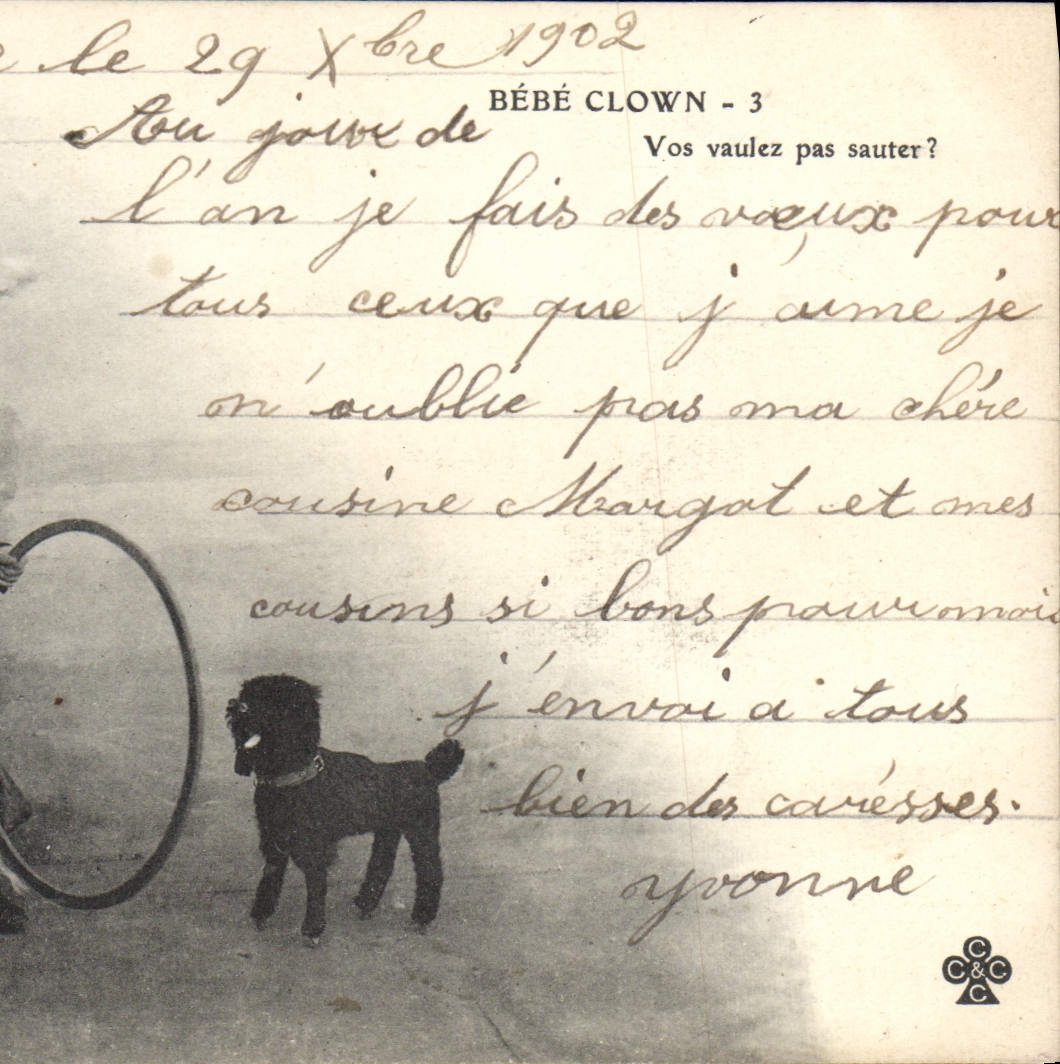 le 29 Xbre 1902
BÉBÉ CLOWN - 3
Au jour de
Vos vaulez pas sauter?
l'an je fais des vœux pour
tous ceux que j'aime je
n'oublie pas ma chére
cousine Margot et mes
cousins si bons pour moi
j'envoi a tous
bien des carésses.
yvonne
C
C & C
C